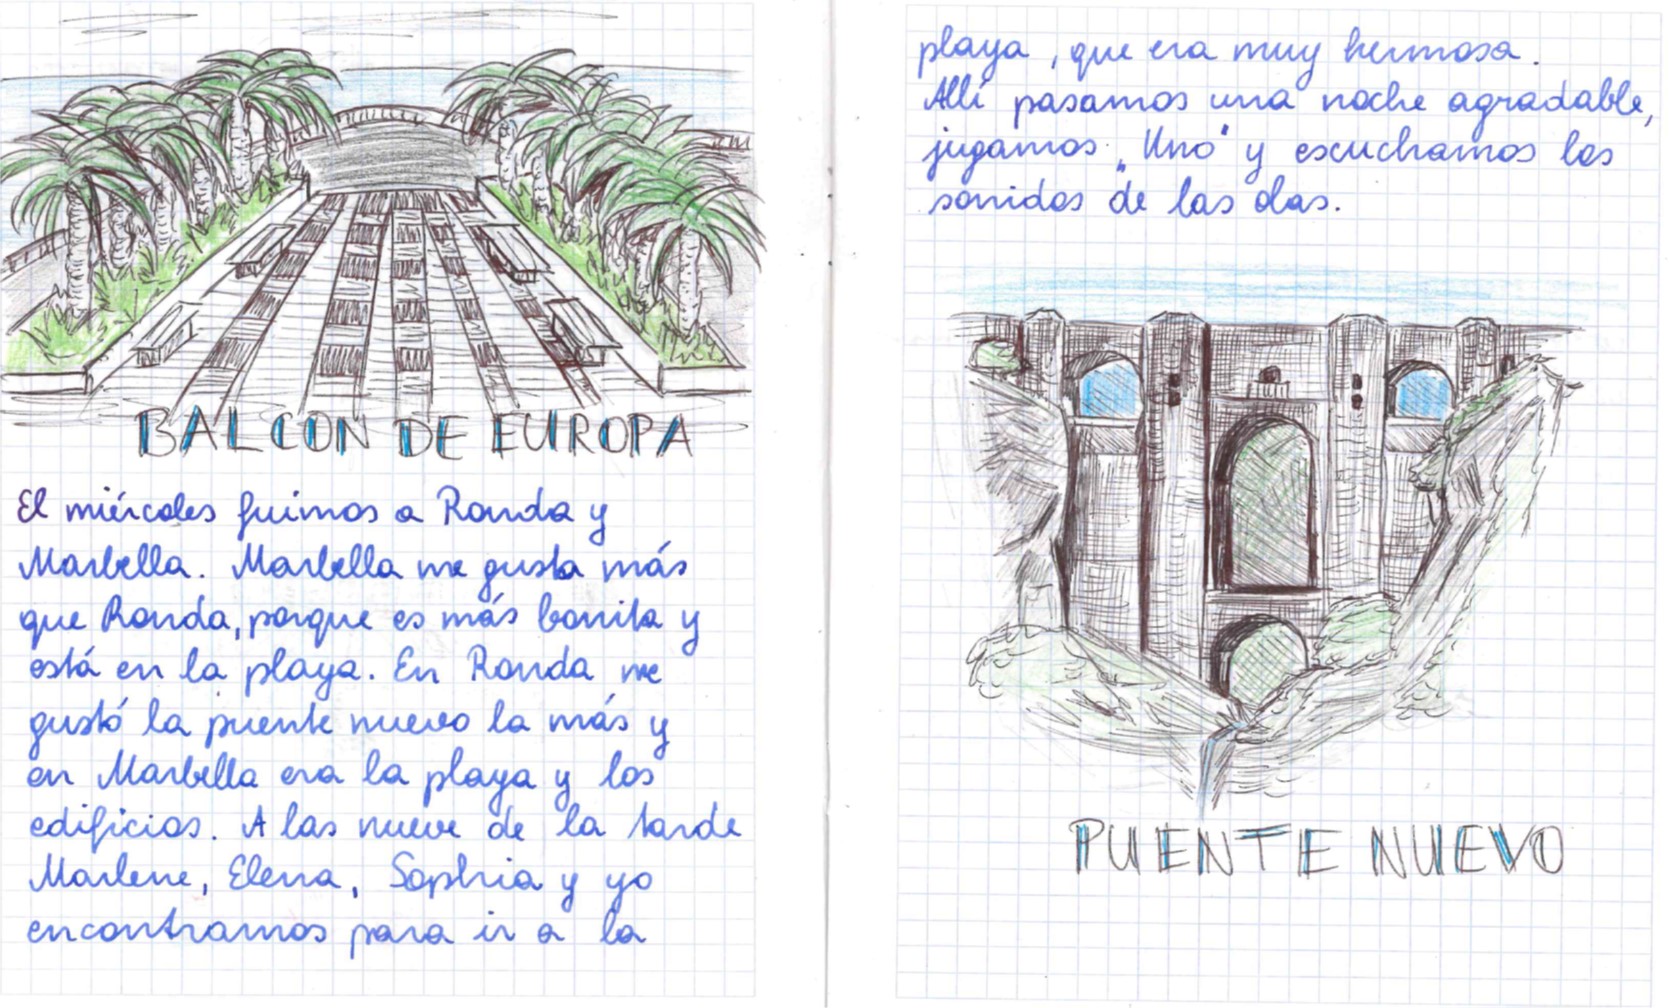 BALCON DE EUROPA
El miércoles fuimos a Ronda y
Marbella. Marbella me gusta más
que Ronda, porque es más bonita y
está en la playa. En Ronda me
gustó la puente nuevo la más y
en Marbella era la playa y los
edificios. A las nueve de la tarde
Marlene, Elena, Sophia y yo
encontramos para ir a la
playa, que era muy hermosa.
Allí pasamos una noche agradable,
jugamos „Uno" y escuchamos los
sonidos de las olas.
PUENTE NUEVO